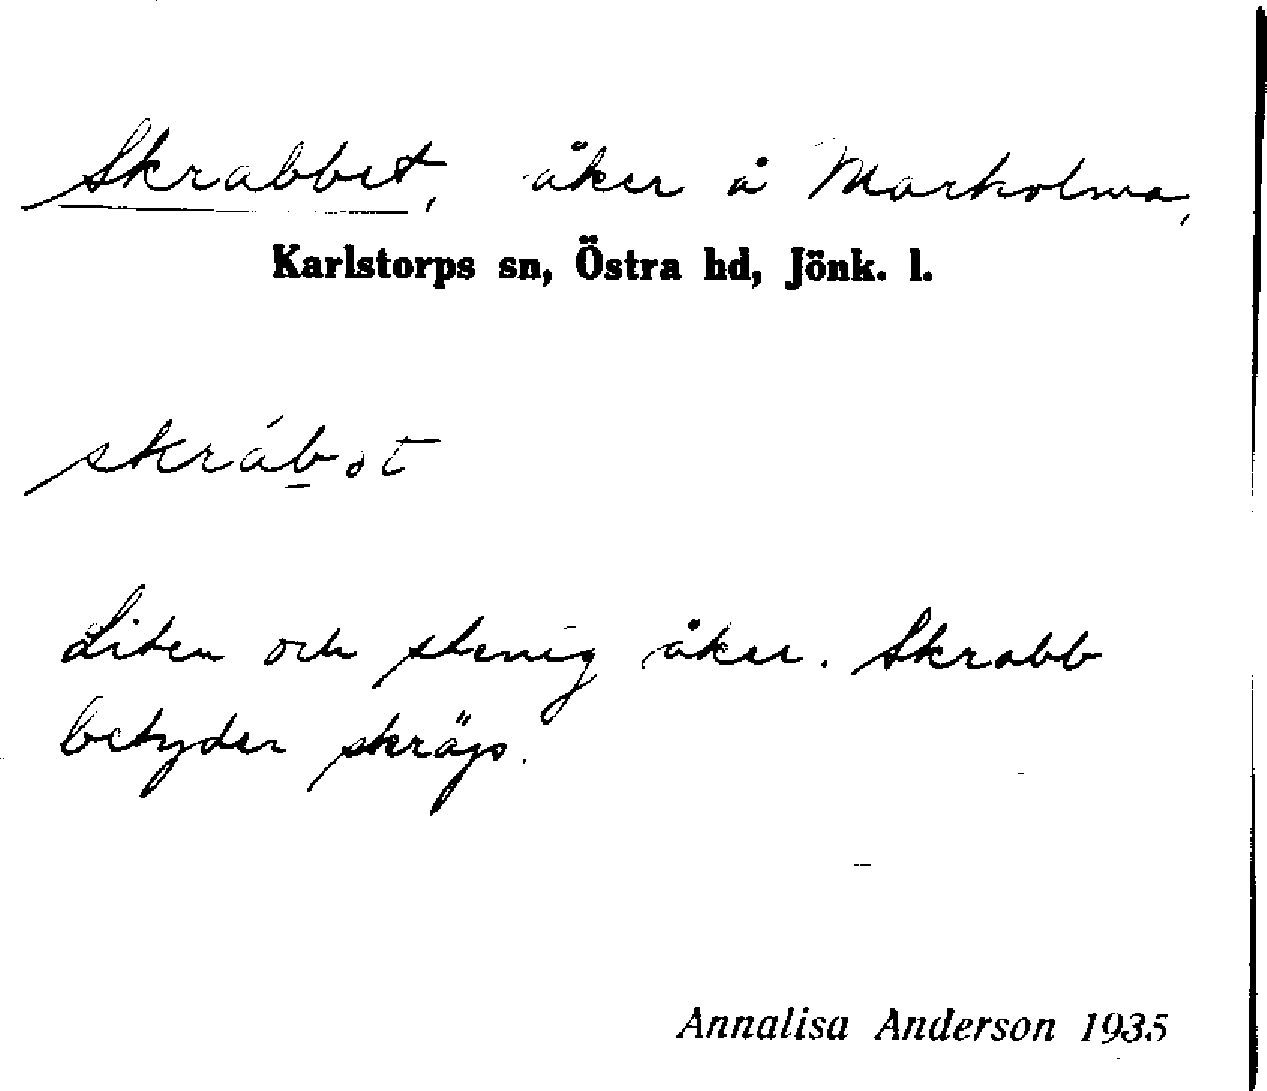 Skrabbet, åker å Markolma,
Karlstorps sn, Östra hd, Jönk. l.
skrábot
Liten och stenig åker. Skrabb
betyder skräp.
Annalisa Anderson 1935